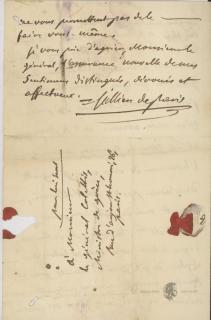 ne vous permettent pas de le
faire vous-même.
je vous prie d'agréer, Monsieur le
général, l'assurance nouvelle de mes
sentimens distingués, dévoués et
affectueux.
Jullien de paris
à Monsieur
le général Colettis,
Ministre de grèce,
paris.